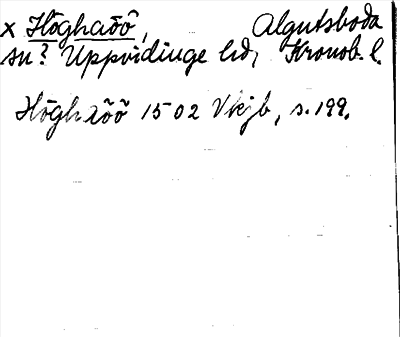 x Höghaöö, Algutsboda
sn? Uppvidinge hd, Kronob. l.
Höghaöö 1502 Vkjb, s. 199.